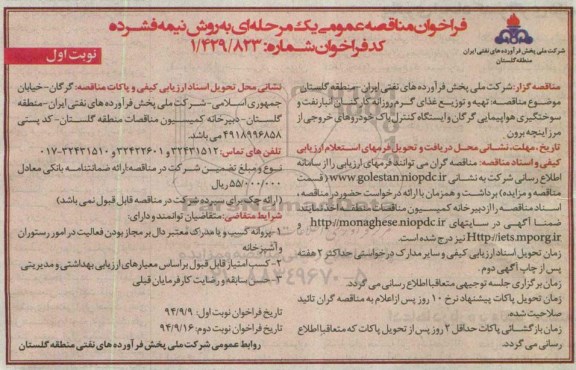 فراخوان مناقصه عمومی یک مرحله‌ای به روش نیمه فشرده
کد فراخوان شماره: ۱/۴۲۹/۸۲۳
نوبت اول
شرکت ملی پخش فرآورده های نفتی ایران
منطقه گلستان
مناقصه گزار: شرکت ملی پخش فرآورده های نفتی ایران-منطقه گلستان
موضوع مناقصه: تهیه و توزیع غذای گرم روزانه کارکنان انبار نفت و
سوختگیری هواپیمایی گرگان و ایستگاه کنترل باک خودروهای خروجی از
مرز اینچه برون
تاریخ، مهلت، نشانی محل دریافت و تحویل فرمهای استعلام ارزیابی
کیفی و اسناد مناقصه: مناقصه گران می توانند فرمهای ارزیابی را از سامانه
اطلاع رسانی شرکت به نشانی www.golestan.niopdc.ir (قسمت
مناقصه و مزایده) برداشت و همزمان با ارائه درخواست حضور در مناقصه،
اسناد مناقصه را از دبیرخانه کمیسیون مناقصات منطقه اخذ نمایند
ضمنا آگهی در سایتهای http://monaghese.niopdc.ir و
Http://iets.mporg.ir نیز درج شده است.
زمان تحویل اسناد ارزیابی کیفی و سایر مدارک درخواستی حداکثر ۲ هفته
پس از چاپ آگهی دوم.
زمان برگزاری جلسه توجیهی متعاقبا اطلاع رسانی می گردد.
زمان تحویل پاکات پیشنهاد نرخ ۱۰ روز پس از اعلام به مناقصه گران تائید
صلاحیت شده.
زمان بازگشائی پاکات حداقل ۲ روز پس از تحویل پاکات که متعاقبا اطلاع
رسانی می گردد.
نشانی محل تحویل اسناد ارزیابی کیفی و پاکات مناقصه: گرگان-خیابان
جمهوری اسلامی-شرکت ملی پخش فرآورده های نفتی ایران-منطقه
گلستان-دبیرخانه کمیسیون مناقصات منطقه گلستان-کد پستی
۴۹۱۸۹۹۶۸۵۸ می باشد.
تلفن های تماس: ۳۲۴۳۱۵۱۲ و ۳۲۴۲۲۶۰۱ و ۳۲۴۳۱۵۱۰-۰۱۷
نوع و مبلغ تضمین شرکت در مناقصه: ارائه ضمانتنامه بانکی معادل
۵۵/۰۰۰/۰۰۰ ریال
(ارائه چک برای سپرده شرکت در مناقصه قابل قبول نمی باشد)
شرایط متقاضی: متقاضیان توانمند و دارای:
۱-پروانه کسب و یا مدرک معتبر دال بر مجاز بودن فعالیت در امور رستوران
و آشپزخانه
۲-کسب امتیاز قابل قبول بر اساس معیارهای ارزیابی بهداشتی و مدیریتی
۳-حسن سابقه و رضایت کارفرمایان قبلی
تاریخ فراخوان نوبت اول: ۹۴/۹/۹
تاریخ فراخوان نوبت دوم: ۹۴/۹/۱۶
روابط عمومی شرکت ملی پخش فرآورده های نفتی منطقه گلستان